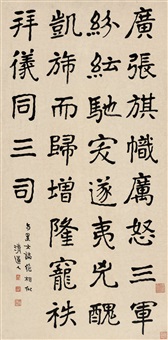 廣張旗幟厲怒三軍
紛紜馳突遂夷兇醜
凱旆而歸增隆寵袟
拜儀同三司
清道人